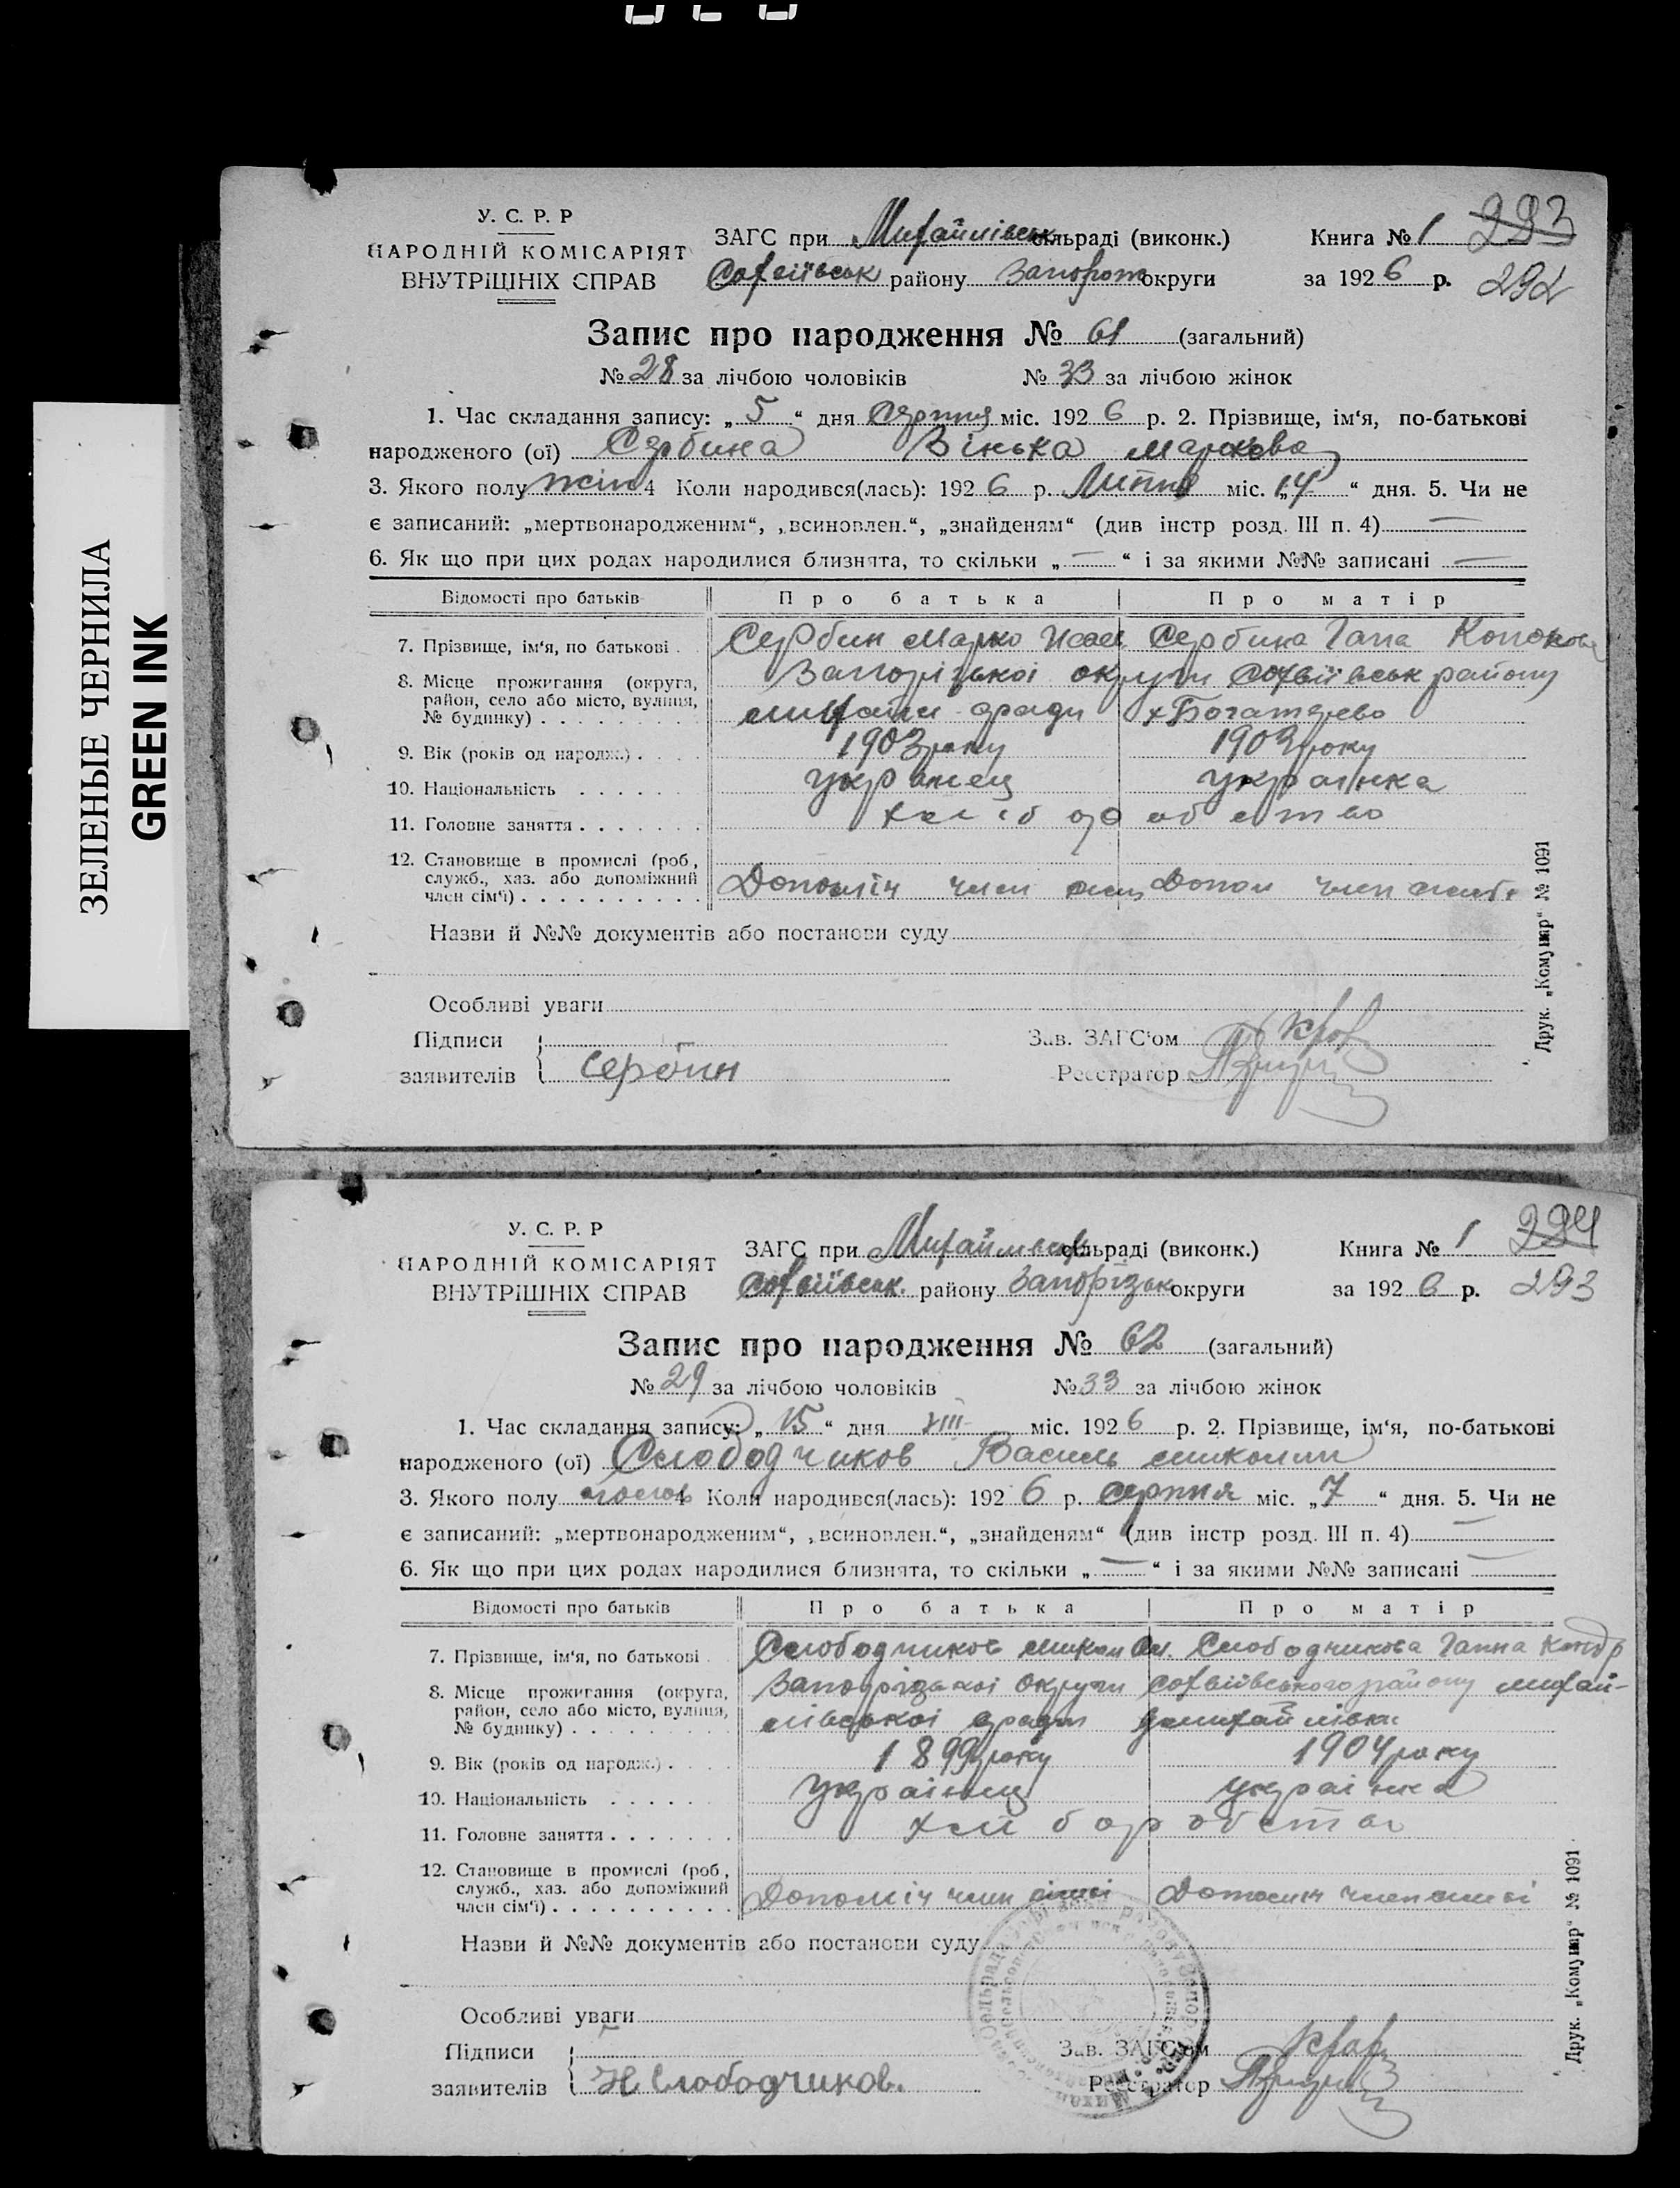 ЗЕЛЕНЫЕ ЧЕРНИЛА
GREEN INK
У. С. Р. Р
НАРОДНІЙ КОМІСАРІЯТ
ВНУТРІШНІХ СПРАВ
ЗАГС при Михайлівськ сільраді (виконк.)
Софіївськ району Запорож округи
Книга № 1 293
за 1926 р. 292
Запис про народження № 61 (загальний)
№ 28 за лічбою чоловіків № 33 за лічбою жінок
1. Час складання запису: „5“ дня Серпня міс. 1926 р. 2. Прізвище, ім‘я, по-батькові
народженого (ої) Сербина Зінька Маркова
3. Якого полу жін 4 Коли народився(лась): 1926 р. Липня міс. „14“ дня. 5. Чи не
є записаний: „мертвонародженим“, „всиновлен.“, „знайденям“ (див інстр розд. III п. 4) —
6. Як що при цих родах народилися близнята, то скільки „—“ і за якими №№ записані —
Відомості про батьків Про батька Про матір
7. Прізвище, ім‘я, по батькові Сербин Марко Сербина Гапа
8. Місце прожигання (округа, район, село або місто, вулиця, № будинку) Запорізької округи Софіївськ району
сради х Богатирево
9. Вік (років од народж.) 1903 року 1903 року
10. Національність українец українка
11. Головне заняття хліборобство
12. Становище в промислі (роб, служб., хаз. або допоміжний член сім‘ї) Допоміч член Допом член
Назви й №№ документів або постанови суду
Особливі уваги
Підписи
заявителів Сербин
Зав. ЗАГС‘ом
Реєстратор
Друк. „Комунар“ № 1091
У. С. Р. Р
НАРОДНІЙ КОМІСАРІЯТ
ВНУТРІШНІХ СПРАВ
ЗАГС при Михайлівськ сільраді (виконк.)
Софіївськ. району Запорізьк округи
Книга № 1 294
за 1926 р. 293
Запис про народження № 62 (загальний)
№ 29 за лічбою чоловіків № 33 за лічбою жінок
1. Час складання запису: „15“ дня VIII міс. 1926 р. 2. Прізвище, ім‘я, по-батькові
народженого (ої) Слободчиков Василь Миколин
3. Якого полу чолов 4 Коли народився(лась): 1926 р. серпня міс. „7“ дня. 5. Чи не
є записаний: „мертвонародженим“, „всиновлен.“, „знайденям“ (див інстр розд. III п. 4) —
6. Як що при цих родах народилися близнята, то скільки „—“ і за якими №№ записані —
Відомості про батьків Про батька Про матір
7. Прізвище, ім‘я, по батькові Слободчиков Микол Слободчикова Ганна Кондр
8. Місце прожигання (округа, район, село або місто, вулиця, № будинку) Запорізької округи Софіївського району Михай-
лівської сради Михайлівка
9. Вік (років од народж.) 1899 року 1904 року
10. Національність українец українка
11. Головне заняття хліборобство
12. Становище в промислі (роб, служб., хаз. або допоміжний член сім‘ї) Допоміч член сімї Допоміч член сімї
Назви й №№ документів або постанови суду
Особливі уваги
Підписи
заявителів Н Слободчиков.
Зав. ЗАГС‘ом
Реєстратор
Друк. „Комунар“ № 1091